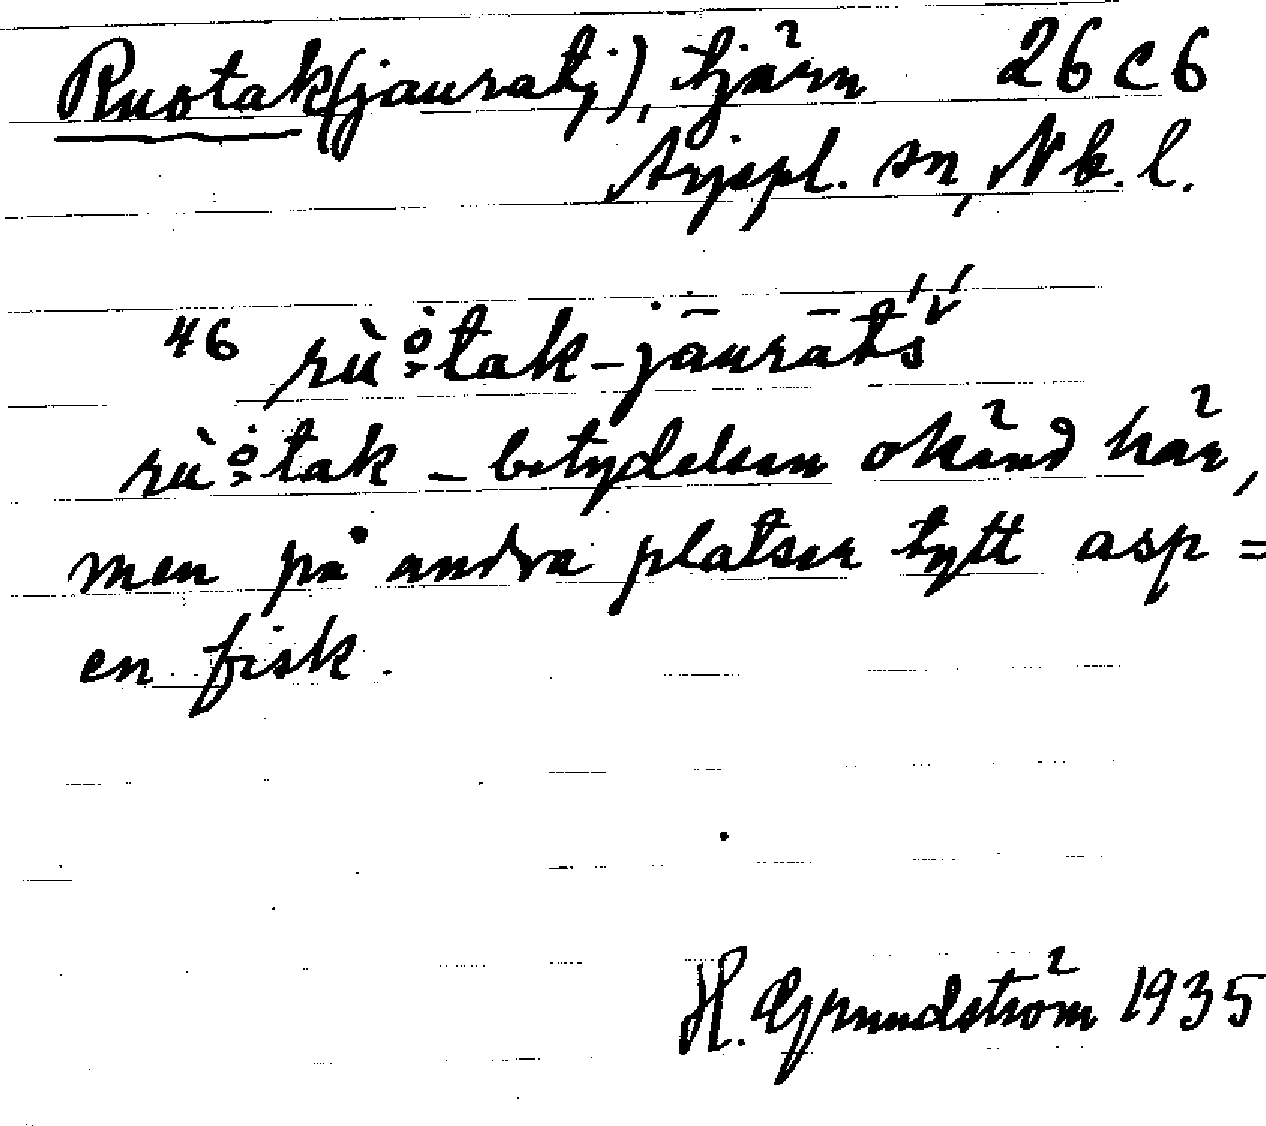 Ruotak(jauratj), tjärn 26 C 6
Arjepl. sn, Nb. l.
46 rùo̊tak-jāurātš́
rùo̊tak - betydelsen okänd här,
men på andra platser tytt asp =
en fisk.
H. Grundström 1935